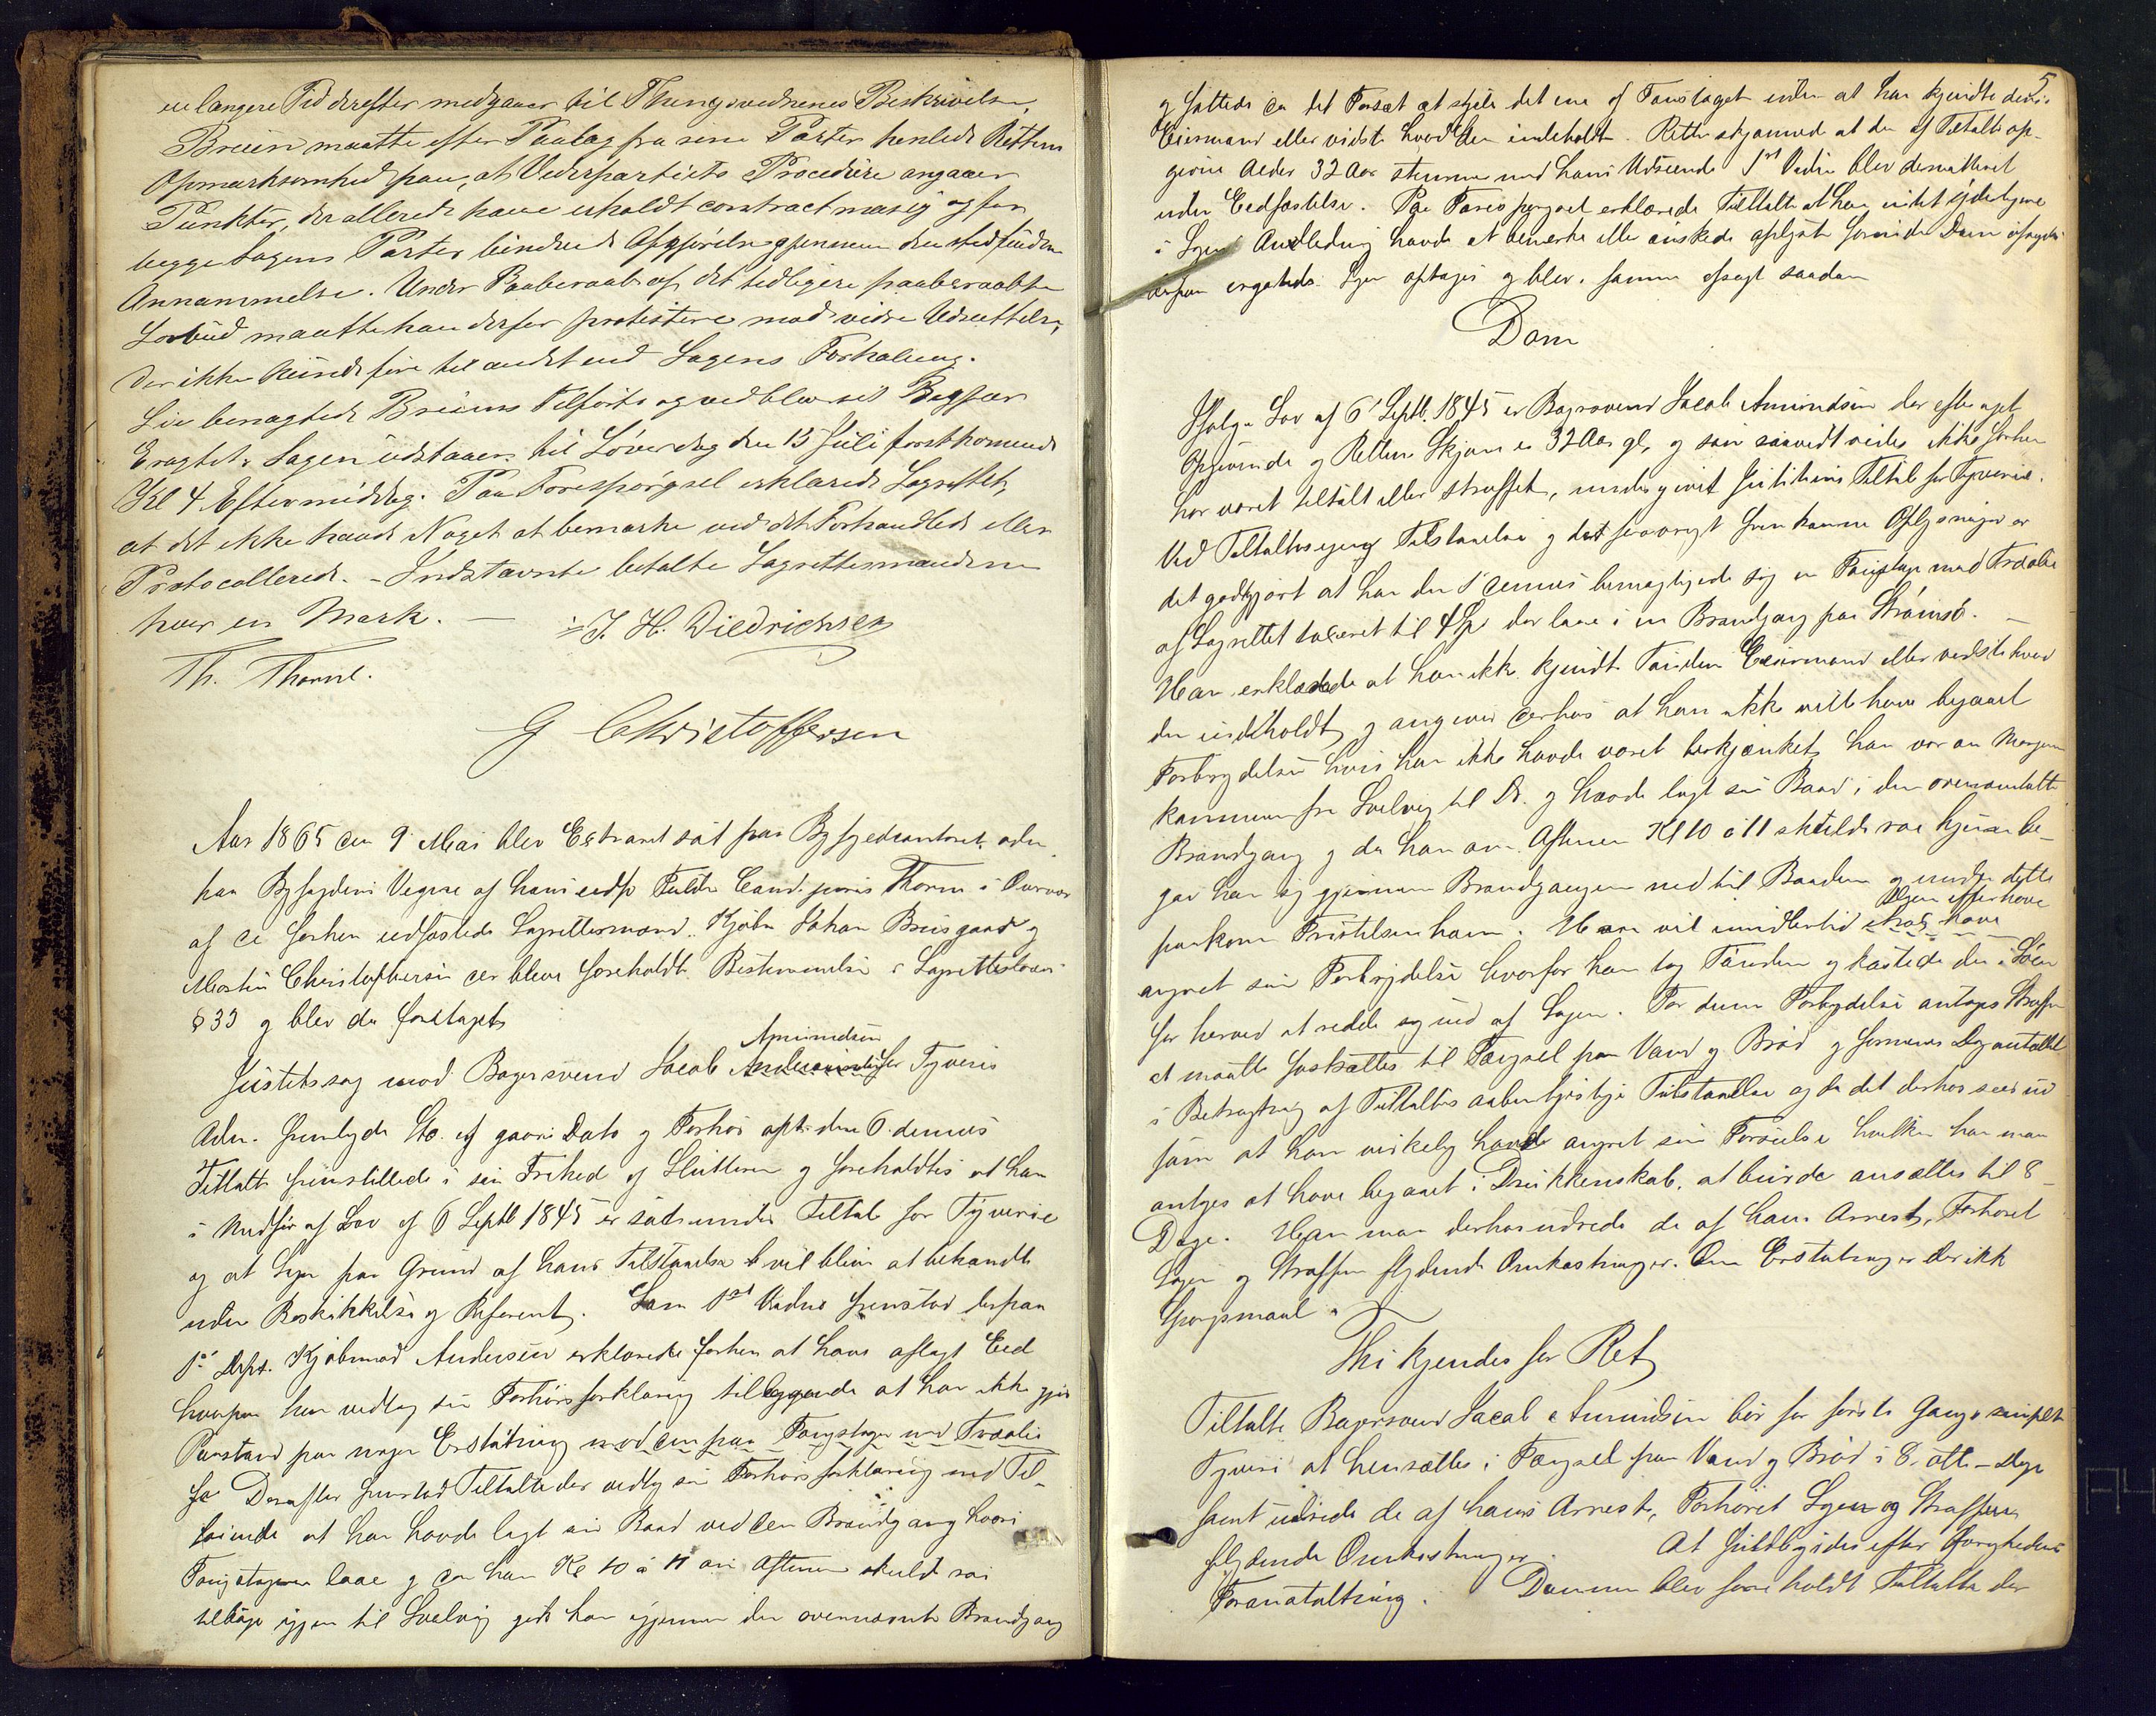 en længere Tid derefter medgaaer til Thingsvidnenes Beskrivelse,
Bruun maatte efter Paalæg fra sine Parter henlede Rettens
Opmærksomhed paa, at Vederpartiets Procedure angaaer
Punkter, der allerede have erholdt contractmæsig og for
begge Sagens Parter bindende Afgjørelse gjennem den stedfundne
Annammelse. Under Paaberaab af det tidligere paaberaabte
Forbud maatte han derfor protestere mod videre Udsættelse,
der ikke kunde føre til andet end Sagens Forhaling.
Lie benægtede Bruuns Tilførte og ved blev sit Begjær
Eragtet: Sagen udstaaer til Løverdag den 15 Juli førstkomende
Kl 4 Eftermiddag. Paa Forespørgsel erklærede Lagrettet,
at det ikke havde Noget at bemærke ved det Forhandlede eller
Protocollerede. - Indstævnte betalte Lagrettesmændene
hver en Mark. —
J. H. Diedrichsen
Th. Thorne.
G Christoffersen
Aar 1865 den 9 Mai blev Extraret sat paa Byfogedcontoret, adm.
paa Byfogdens Vegne af hans edsv Fuldm Cand. juris Thorne i Overvær
af de forhen edfæstede Lagrettesmænd. Kjøbm Johan Breisgaard og
Martin Christophersen der bleve foreholdt Bestemmelsen i Lagretteloven
§ 33 og blev da foretaget
Amundsen
Justitssag mod Bagersvend Jacob for Tyveri
Adm. fremlagde Sto. af gaars Dato og Forhør opt. den 6. dennes
Tiltalte fremstillede i sin Frihed og foreholdtes at han
i Medfør af Lov af 6 Septb 1845 er sat under Tiltale for Tyverie
og at Sagen paa Grund af hans Tilstaaelse vil blive at behandle
uden Beskikkelse og Referent. Som 1ste Vidne fremstod herpaa
Kjøbmand Andersen erklærede forhen at have aflagt Eed
hvorpaa han vedtog sin Forhørsforklaring tillæggende at han ikke gjør
Paastand paa nogen Erstatning
Derefter fremstod Tiltalte der vedtog sin Forhørsforklaring med Til-
føiende at han havde lagt sin Baad ved den Brandgang hvori
laae og da han Kl 10 à 11 om Aftenen skulde roe
tilbage igjen til Svelvig gik han igjennem den ovennævnte Brandgang
5
og fattede da det Forsæt at stjæle det ene af uden at han kjendte dens
Eiermand eller vidste hvad den indeholdt. Retten skjønnede at den af Tiltalte op-
givne Alder 32 Aar stemmer med hans Udseende 1ste Vidne blev demitteret
uden Eedfæstelse. Paa Forespørgsel erklærede Tiltalte at han intet yderligere
i Sagens Anledning havde at bemærke eller ønskede oplyst forinden Dom afsagdes
Sagen optages og blev i samme afsagt saadan
Dom
Ifølge Lov af 6 Septb. 1845 er Bagersvend Jacob Amundsen der efter eget
Opgivende og Rettens Skjøn er 32 Aar gl, og som saavidt vides ikke forhen
har været tiltalt eller straffet, undergivet Justitiens Tiltale for Tyverie.
Ved Tiltaltes egen Tilstaaelse og det forøvrigt fremkomne Oplysninger er
det godtgjort at han den 5 dennes bemægtigede sig en
af Lagrettet taxeret til der laae i en Brandgang paa Strømsø.
Han erklærede at han ikke kjendte Tønden Eiermand eller vidste hvad
den indeholdt, og angiver derhos at han ikke vilde have begaaet
Forbrydelsen hvis han ikke havde været beskjænket, han var om Morgenen
kommen fra Svelvig til Dr. og havde lagt sin Baad i den ovenomtalte
Brandgang og da han om Aftenen Kl 10 à 11 skulde roe hjem be-
gav han sig gjennem Brandgangen ned til Baaden og under dette
paakom Fristelsen ham. Han vil imidlertid
angret sin Forbrydelse hvorfor han tog Tønden og kastede den i Søen
for herved at redde sig ud af Sagen. For denne Forbrydelse antages Straffen
at maatte fastsættes til Fængsel paa Vand og Brød og formenes Dagantallet
i Betragtning af Tiltaltes aabenhjertige Tilstaaelse og da det derhos seer ud
som at han virkelig havde angret sin Forseelse hvilken han maa
antages at have begaaet i Drukkenskab, at burde ansættes til 8
Dage. Han maa derhos udrede de af hans Arrest, Forhøret
Sagen og Straffen flydende Omkostninger. Om Erstatning er der ikke
Spørgsmaal.
Thi kjendes for Ret
Tiltalte Bagersvend Jacob Amundsen bør for første Gang simpelt
Tyveri at hensættes i Fængsel paa Vand og Brød i 8. otte - Dage
samt udrede de af hans Arrest, Forhøret Sagen og Straffen
flydende Omkostninger. At fuldbyrdes efter Øvrighedens
Foranstaltning. Dommen blev foreholdt Tiltalte der